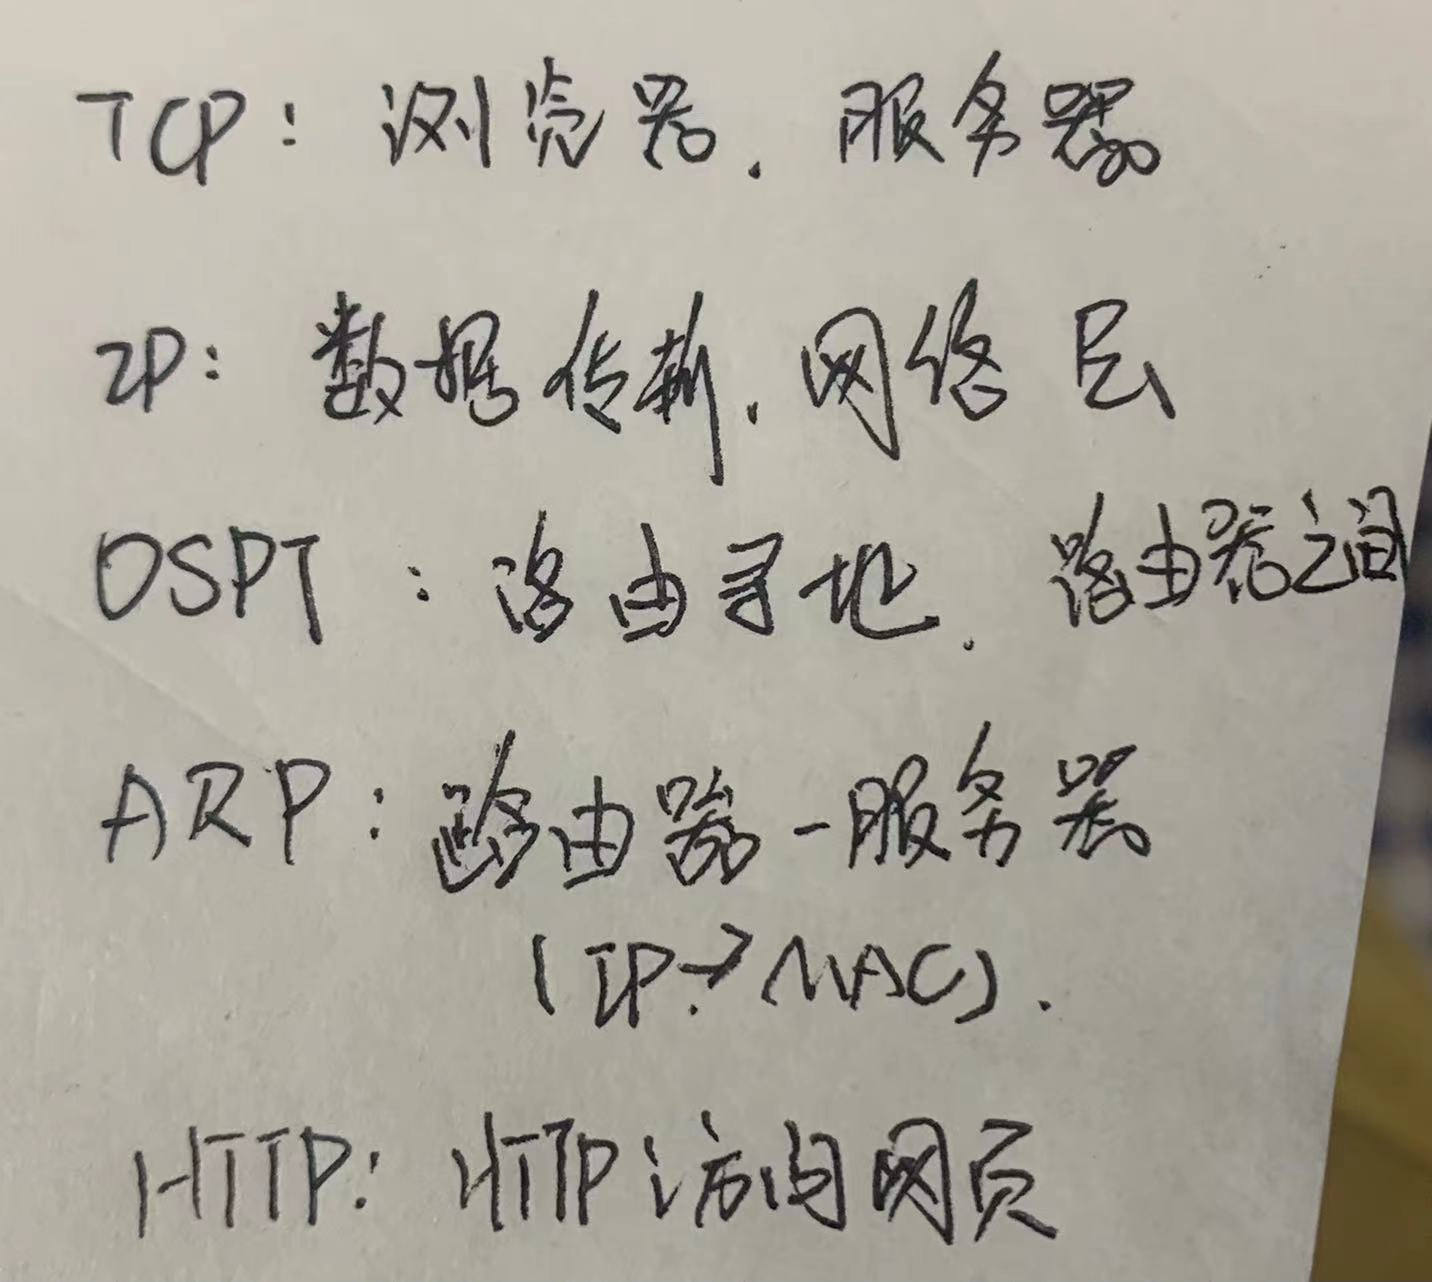 TCP：浏览器．服务器
IP：数据传输．网络层
OSPT：路由寻地．路由器之间
ARP：路由器-服务器
(IP→MAC).
HTTP：HTTP访问网页